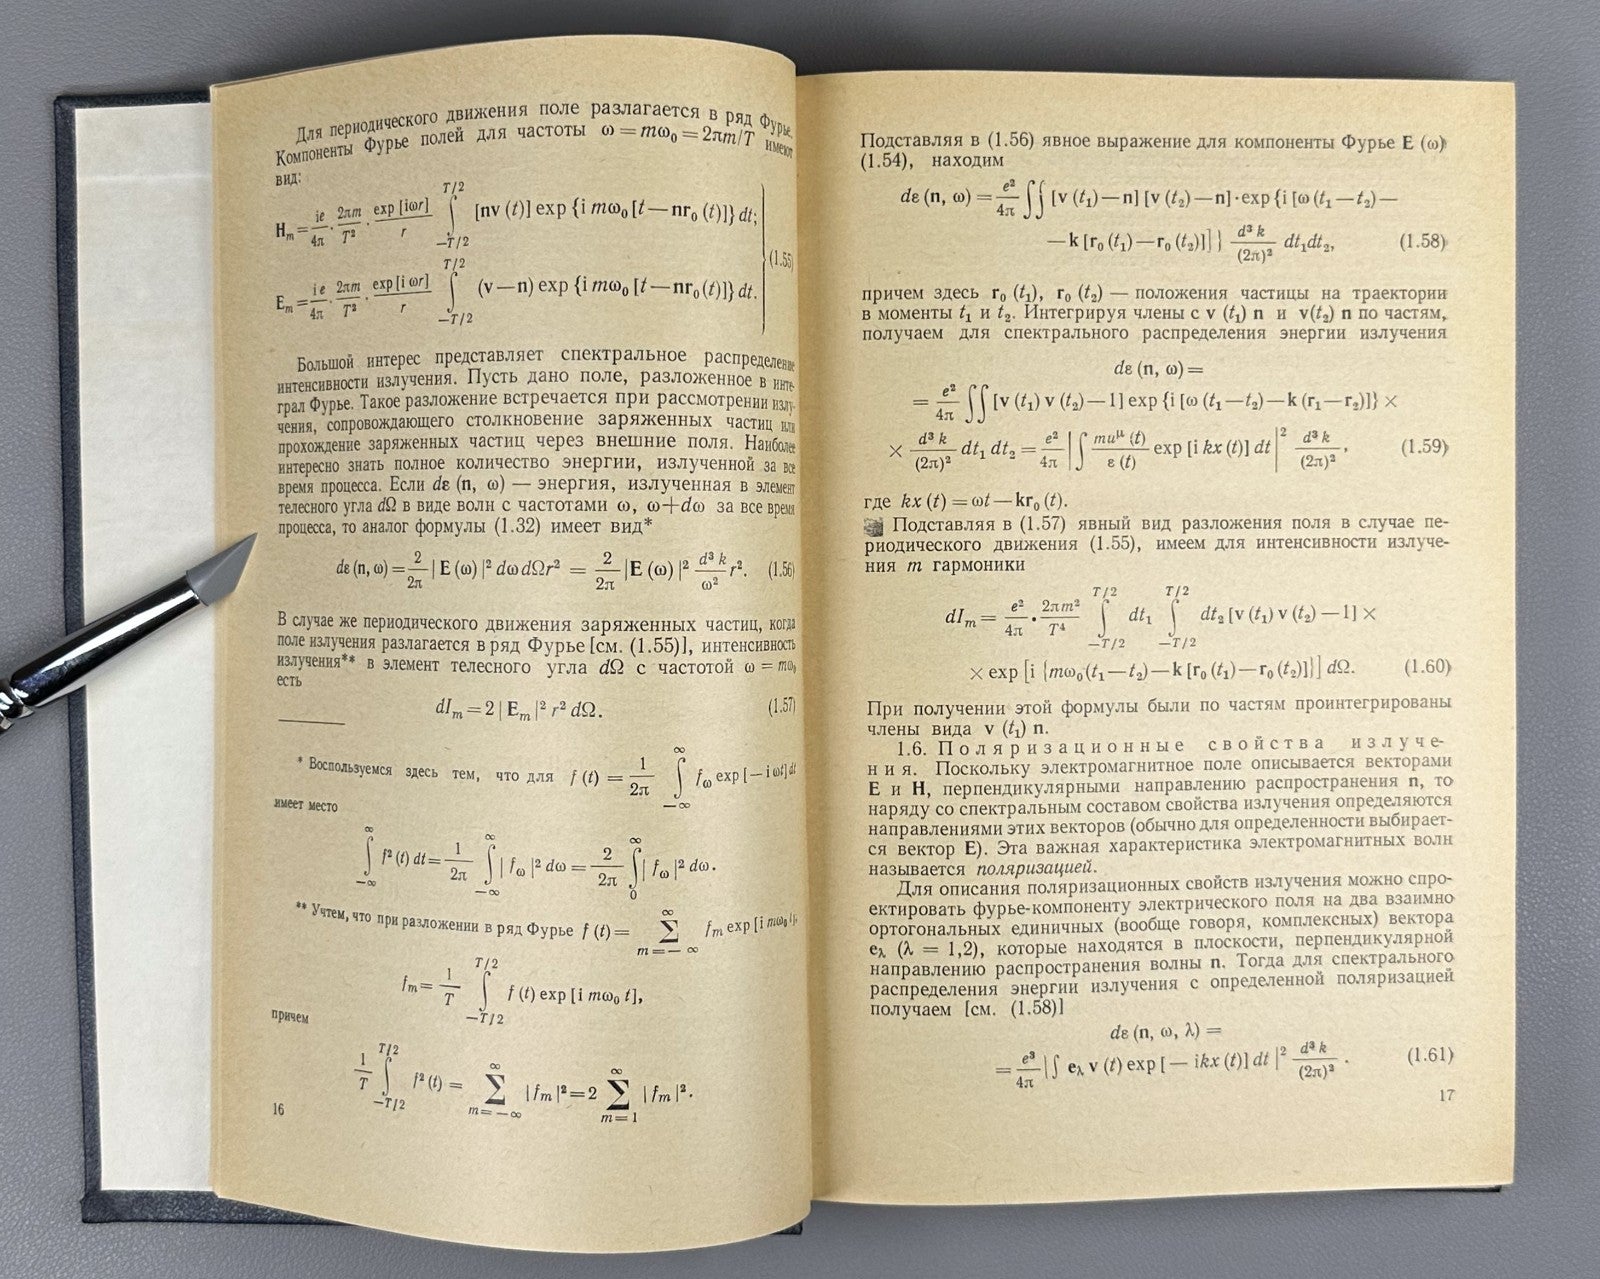 Для периодического движения поле разлагается в ряд Фурье.
Компоненты Фурье полей для частоты ω = mω₀ = 2πm/T имеют
вид:
H_m = ie/4π · 2πm/T² · exp[iωr]/r ∫_{−T/2}^{T/2} [nv (t)] exp {i mω₀ [t — nr₀ (t)]} dt;
(1.55)
E_m = ie/4π · 2πm/T² · exp[i ωr]/r ∫_{−T/2}^{T/2} (v — n) exp {i mω₀ [t — nr₀(t)]} dt.
Большой интерес представляет спектральное распределение
интенсивности излучения. Пусть дано поле, разложенное в инте-
грал Фурье. Такое разложение встречается при рассмотрении излу-
чения, сопровождающего столкновение заряженных частиц или
прохождение заряженных частиц через внешние поля. Наиболее
интересно знать полное количество энергии, излученной за все
время процесса. Если dε (n, ω) — энергия, излученная в элемент
телесного угла dΩ в виде волн с частотами ω, ω+dω за все время
процесса, то аналог формулы (1.32) имеет вид*
dε (n, ω) = 2/2π | E (ω) |² dω dΩr² = 2/2π |E (ω) |² d³k/ω² r². (1.56)
В случае же периодического движения заряженных частиц, когда
поле излучения разлагается в ряд Фурье [см. (1.55)], интенсивность
излучения** в элемент телесного угла dΩ с частотой ω = mω₀
есть
dI_m = 2 | E_m |² r² dΩ. (1.57)
* Воспользуемся здесь тем, что для f (t) = 1/2π ∫_{−∞}^{∞} f_ω exp [— i ωt] dt
имеет место
∫_{−∞}^{∞} f² (t) dt = 1/2π ∫_{−∞}^{∞} | f_ω |² dω = 2/2π ∫_{0}^{∞} | f_ω |² dω.
** Учтем, что при разложении в ряд Фурье f (t) = ∑_{m=−∞}^{∞} f_m exp [i mω₀ t],
f_m = 1/T ∫_{−T/2}^{T/2} f (t) exp [i mω₀ t],
причем
1/T ∫_{−T/2}^{T/2} f² (t) = ∑_{m=−∞}^{∞} | f_m |² = 2 ∑_{m=1}^{∞} | f_m |².
16
Подставляя в (1.56) явное выражение для компоненты Фурье E (ω)
(1.54), находим
dε (n, ω) = e²/4π ∫∫ [v (t₁) — n] [v (t₂) — n] · exp {i [ω (t₁ — t₂) —
— k [r₀ (t₁) — r₀ (t₂)]] } d³k/(2π)² dt₁dt₂, (1.58)
причем здесь r₀ (t₁), r₀ (t₂) — положения частицы на траектории
в моменты t₁ и t₂. Интегрируя члены с v (t₁) n и v(t₂) n по частям,
получаем для спектрального распределения энергии излучения
dε (n, ω) =
= e²/4π ∫∫ [v (t₁) v (t₂) — 1] exp {i [ω (t₁ — t₂) — k (r₁ — r₂)]} ×
× d³k/(2π)² dt₁ dt₂ = e²/4π | ∫ mu^μ (t)/ε (t) exp [i kx (t)] dt |² d³k/(2π)² , (1.59)
где kx (t) = ωt — kr₀ (t).
Подставляя в (1.57) явный вид разложения поля в случае пе-
риодического движения (1.55), имеем для интенсивности излуче-
ния m гармоники
dI_m = e²/4π · 2πm²/T⁴ ∫_{−T/2}^{T/2} dt₁ ∫_{−T/2}^{T/2} dt₂ [v (t₁) v (t₂) — 1] ×
× exp [i {mω₀ (t₁ — t₂) — k [r₀ (t₁) — r₀ (t₂)]}] dΩ. (1.60)
При получении этой формулы были по частям проинтегрированы
члены вида v (t₁) n.
1.6. Поляризационные свойства излуче-
ния. Поскольку электромагнитное поле описывается векторами
E и H, перпендикулярными направлению распространения n, то
наряду со спектральным составом свойства излучения определяются
направлениями этих векторов (обычно для определенности выбирает-
ся вектор E). Эта важная характеристика электромагнитных волн
называется поляризацией.
Для описания поляризационных свойств излучения можно спро-
ектировать фурье-компоненту электрического поля на два взаимно
ортогональных единичных (вообще говоря, комплексных) вектора
e_λ (λ = 1,2), которые находятся в плоскости, перпендикулярной
направлению распространения волны n. Тогда для спектрального
распределения энергии излучения с определенной поляризацией
получаем [см. (1.58)]
dε (n, ω, λ) =
= e³/4π | ∫ e_λ v (t) exp [ — ikx (t)] dt |² d³k/(2π)³ . (1.61)
17